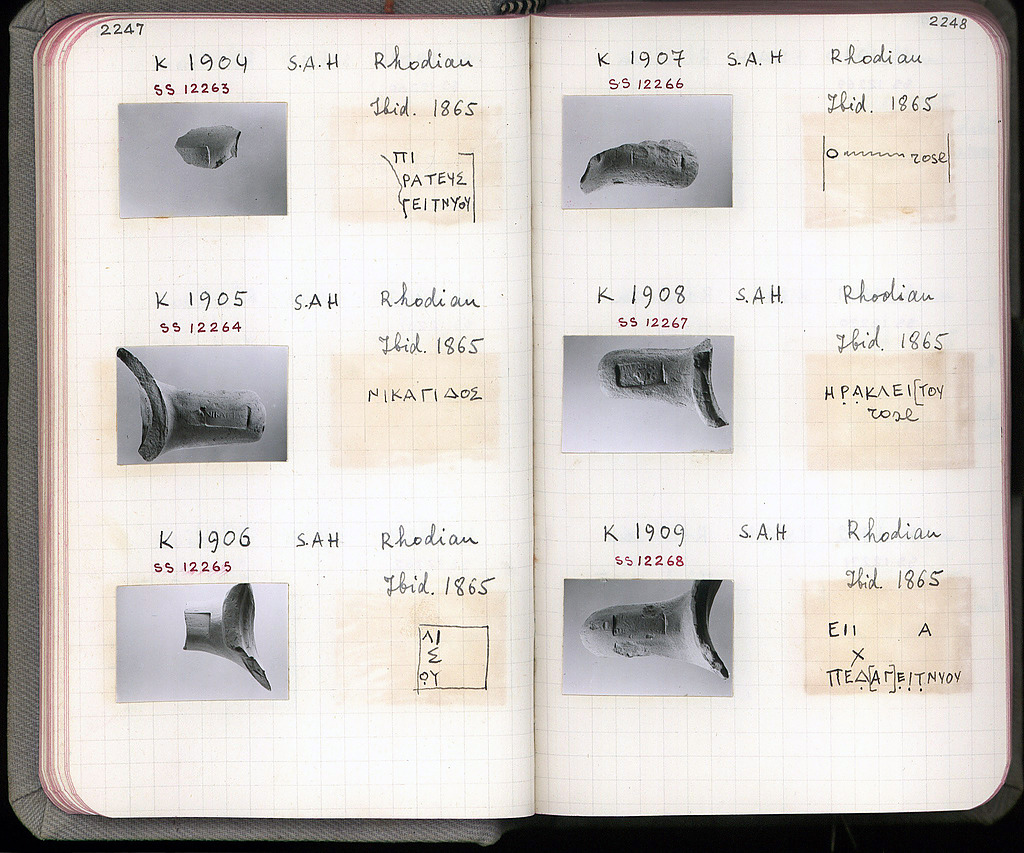 2247
K 1904 S.A.H Rhodian
SS 12263
Ibid. 1865
ΠΙ
ΡΑΤΕΥΣ
ΓΕΙΤΝΥΟΥ
K 1905 S.A.H Rhodian
SS 12264
Ibid. 1865
ΝΙΚΑΓΙΔΟΣ
K 1906 S.A.H Rhodian
SS 12265
Ibid. 1865
ΛΙ
Σ
ΟΥ
2248
K 1907 S.A.H Rhodian
SS 12266
Ibid. 1865
rose
K 1908 S.A.H. Rhodian
SS 12267
Ibid. 1865
ΗΡΑΚΛΕΙ[ΤΟΥ
rose
K 1909 S.A.H Rhodian
SS 12268
Ibid. 1865
ΕΙΙ Α
Χ
ΠΕΔ[ΑΓ]ΕΙΤΝΥΟΥ